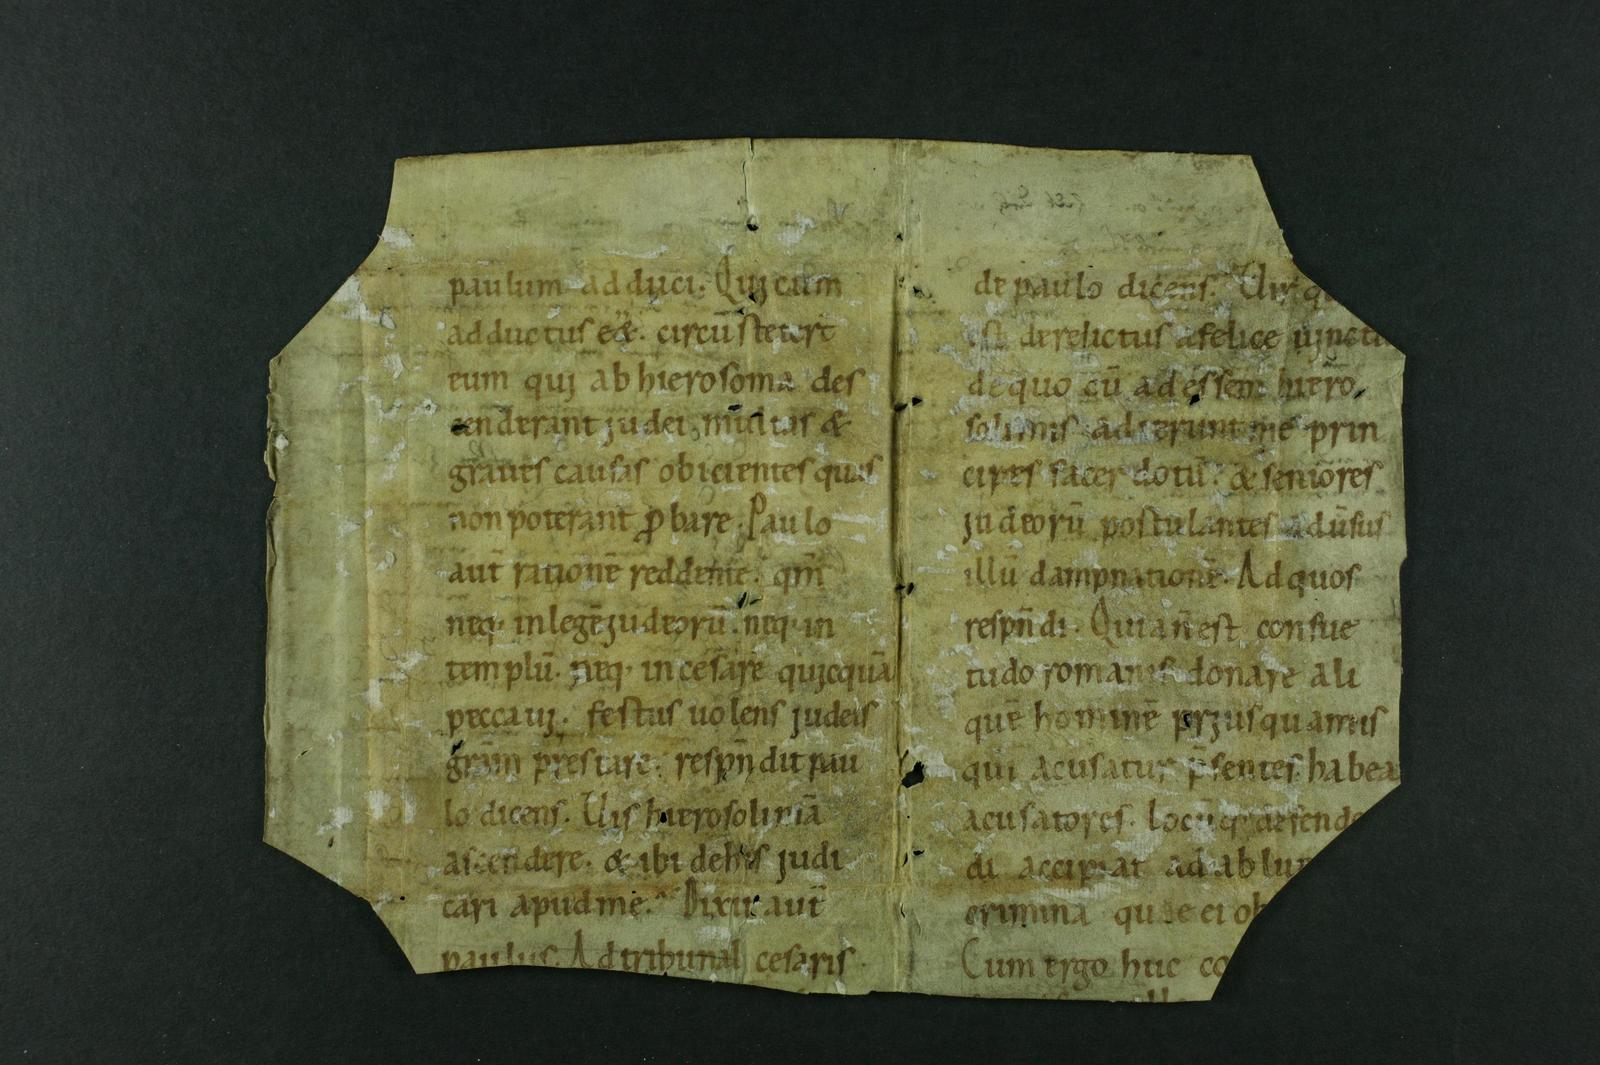 paulum adduci. Qui cum
adductus ee&. circū stetert
eum qui ab hierosoma des
cenderant judei multas &
graues causas obicientes quas
non poterant ꝓbare. Paulo
aut̄ rationē reddente. qm̄
neq. in legē judeorū. neq. in
templū. neq. in cesarē quicquā
peccaui. festus uolens judeis
grām prestare. respn̄dit pau
lo dicens. Uis hierosolimā
ascendere. & ibi dehis judi
cari apud me. Dixit aut̄
paulus. Ad tribunal cesaris
de paulo dicens. Uir
est derelictus afelice
de quo cū ad essem hiero
solimis adierunt me prin
cipes sacer dotū. & seniores
judeorū postulantes adūsus
illū dampnationē. Ad quos
respn̄di. Quia n̄ est consue
tudo romanis donare ali
quē hominē priusquamis
qui acusatur p̄sentes habea
acusatores. locūq defende
di accipiat ad ablu
crimina quae ei ob
Cum ergo huc co